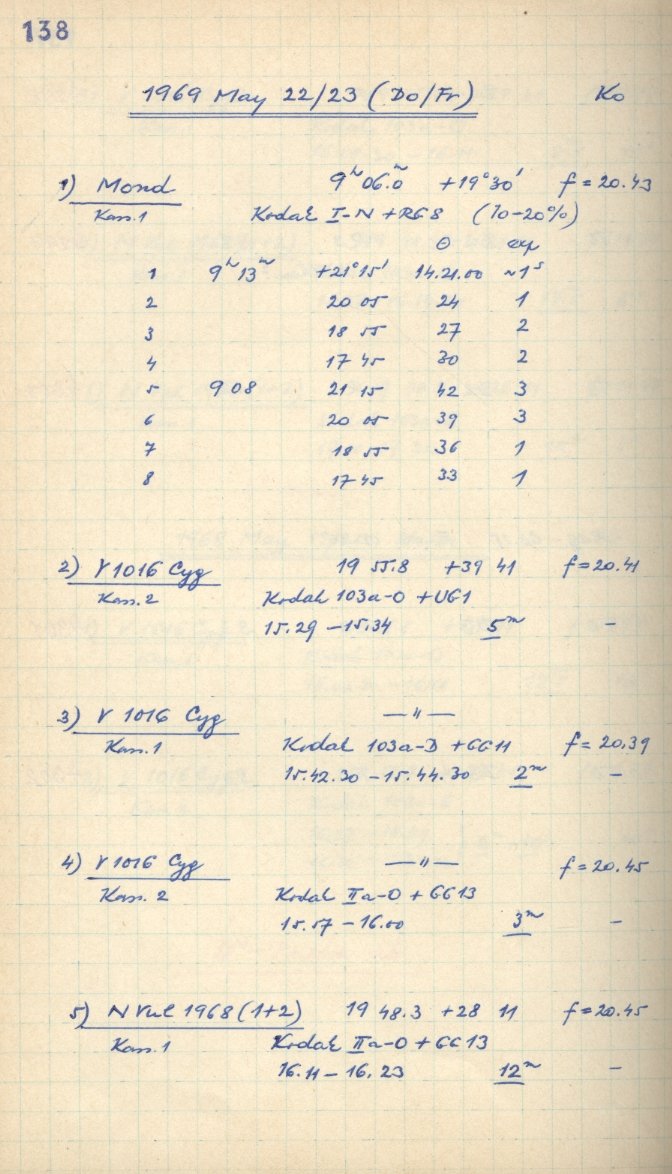 138
1969 May 22/23 (Do/Fr) Ko
1) Mond 9ʰ06.ᵐ0 +19°30' f = 20.43
Kass. 1 Kodak I-N + RG8 (10-20%)
Θ exp
1 9ʰ13ᵐ +21°15' 14.21.00 ~1ˢ
2 20 05 24 1
3 18 55 27 2
4 17 45 30 2
5 9 08 21 15 42 3
6 20 05 39 3
7 18 55 36 1
8 17 45 33 1
2) V 1016 Cyg 19 55.8 +39 41 f = 20.41
Kass. 2 Kodak 103a-O + UG1
15.29 - 15.34 5ᵐ -
3) V 1016 Cyg —"—
Kass. 1 Kodak 103a-D + GG11 f = 20.39
15.42.30 - 15.44.30 2ᵐ -
4) V 1016 Cyg —"— f = 20.45
Kass. 2 Kodak IIa-O + GG13
15.57 - 16.00 3ᵐ -
5) N Vul 1968 (1+2) 19 48.3 +28 11 f = 20.45
Kass. 1 Kodak IIa-O + GG13
16.11 - 16.23 12ᵐ -